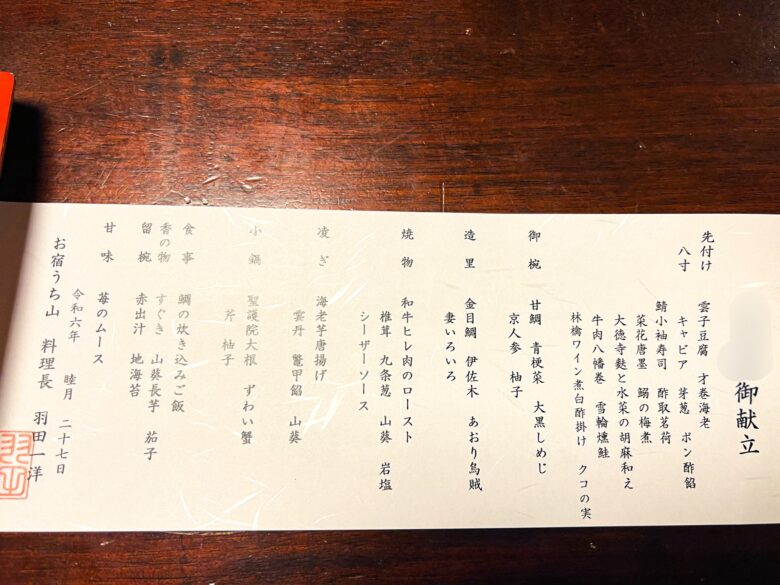 御献立
先付け　雲子豆腐　才巻海老
キャビア　芽葱　ポン酢餡
八寸　鯖小袖寿司　酢取茗荷
菜花唐墨　鰯の梅煮
大徳寺麩と水菜の胡麻和え
牛肉八幡巻　雪輪燻鮭
林檎ワイン煮白酢掛け　クコの実
御椀　甘鯛　青梗菜　大黒しめじ
京人参　柚子
造里　金目鯛　伊佐木　あおり烏賊
妻いろいろ
焼物　和牛ヒレ肉のロースト
椎茸　九条葱　山葵　岩塩
シーザーソース
凌ぎ　海老芋唐揚げ
雲丹　鼈甲餡　山葵
小鍋　聖護院大根　ずわい蟹
芹　柚子
食事　鯛の炊き込みご飯
香の物　すぐき　山葵長芋　茄子
留椀　赤出汁　地海苔
甘味　苺のムース
令和六年　睦月　二十七日
お宿うち山　料理長　羽田一洋